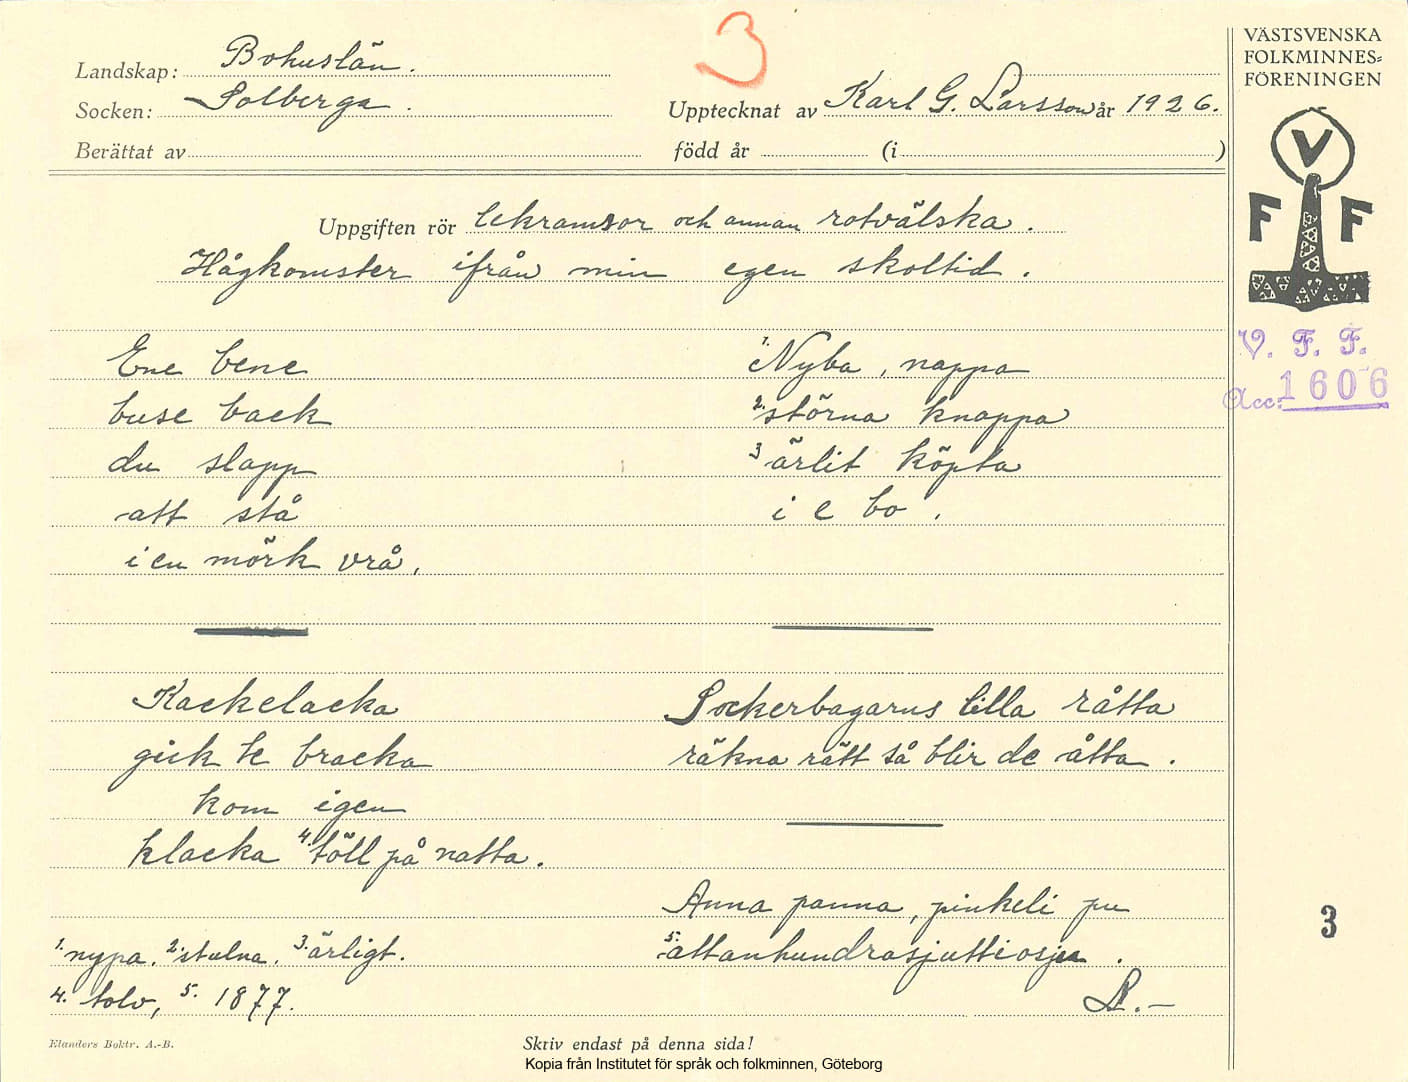 3
Landskap: Bohuslän.
Socken: Solberga.
Upptecknat av Karl G. Larsson år 1926.
Berättat av född år (i )
VÄSTSVENSKA
FOLKMINNES-
FÖRENINGEN
V
F F
V. F. F.
Acc: 1606
Uppgiften rör lekramsor och annan rotvälska.
Hågkomster ifrån min egen skoltid.
Ene bene
buse back
du slapp
att stå
i en mörk vrå.
1. Nyba, nappa
2. störna knappa
3 ärlit köpta
i e bo.
Kackelacka
gick te bracka
kom igen
klacka 4. töll på natta.
Sockerbagarns lilla råtta
räkna rätt så blir de åtta.
Anna panna, pinkeli pu
5. attanhundrasjuttiosju.
L.–
1. nypa. 2. stulna. 3. ärligt.
4. tolv, 5. 1877.
3
Elanders Boktr. A.-B.
Skriv endast på denna sida!
Kopia från Institutet för språk och folkminnen, Göteborg